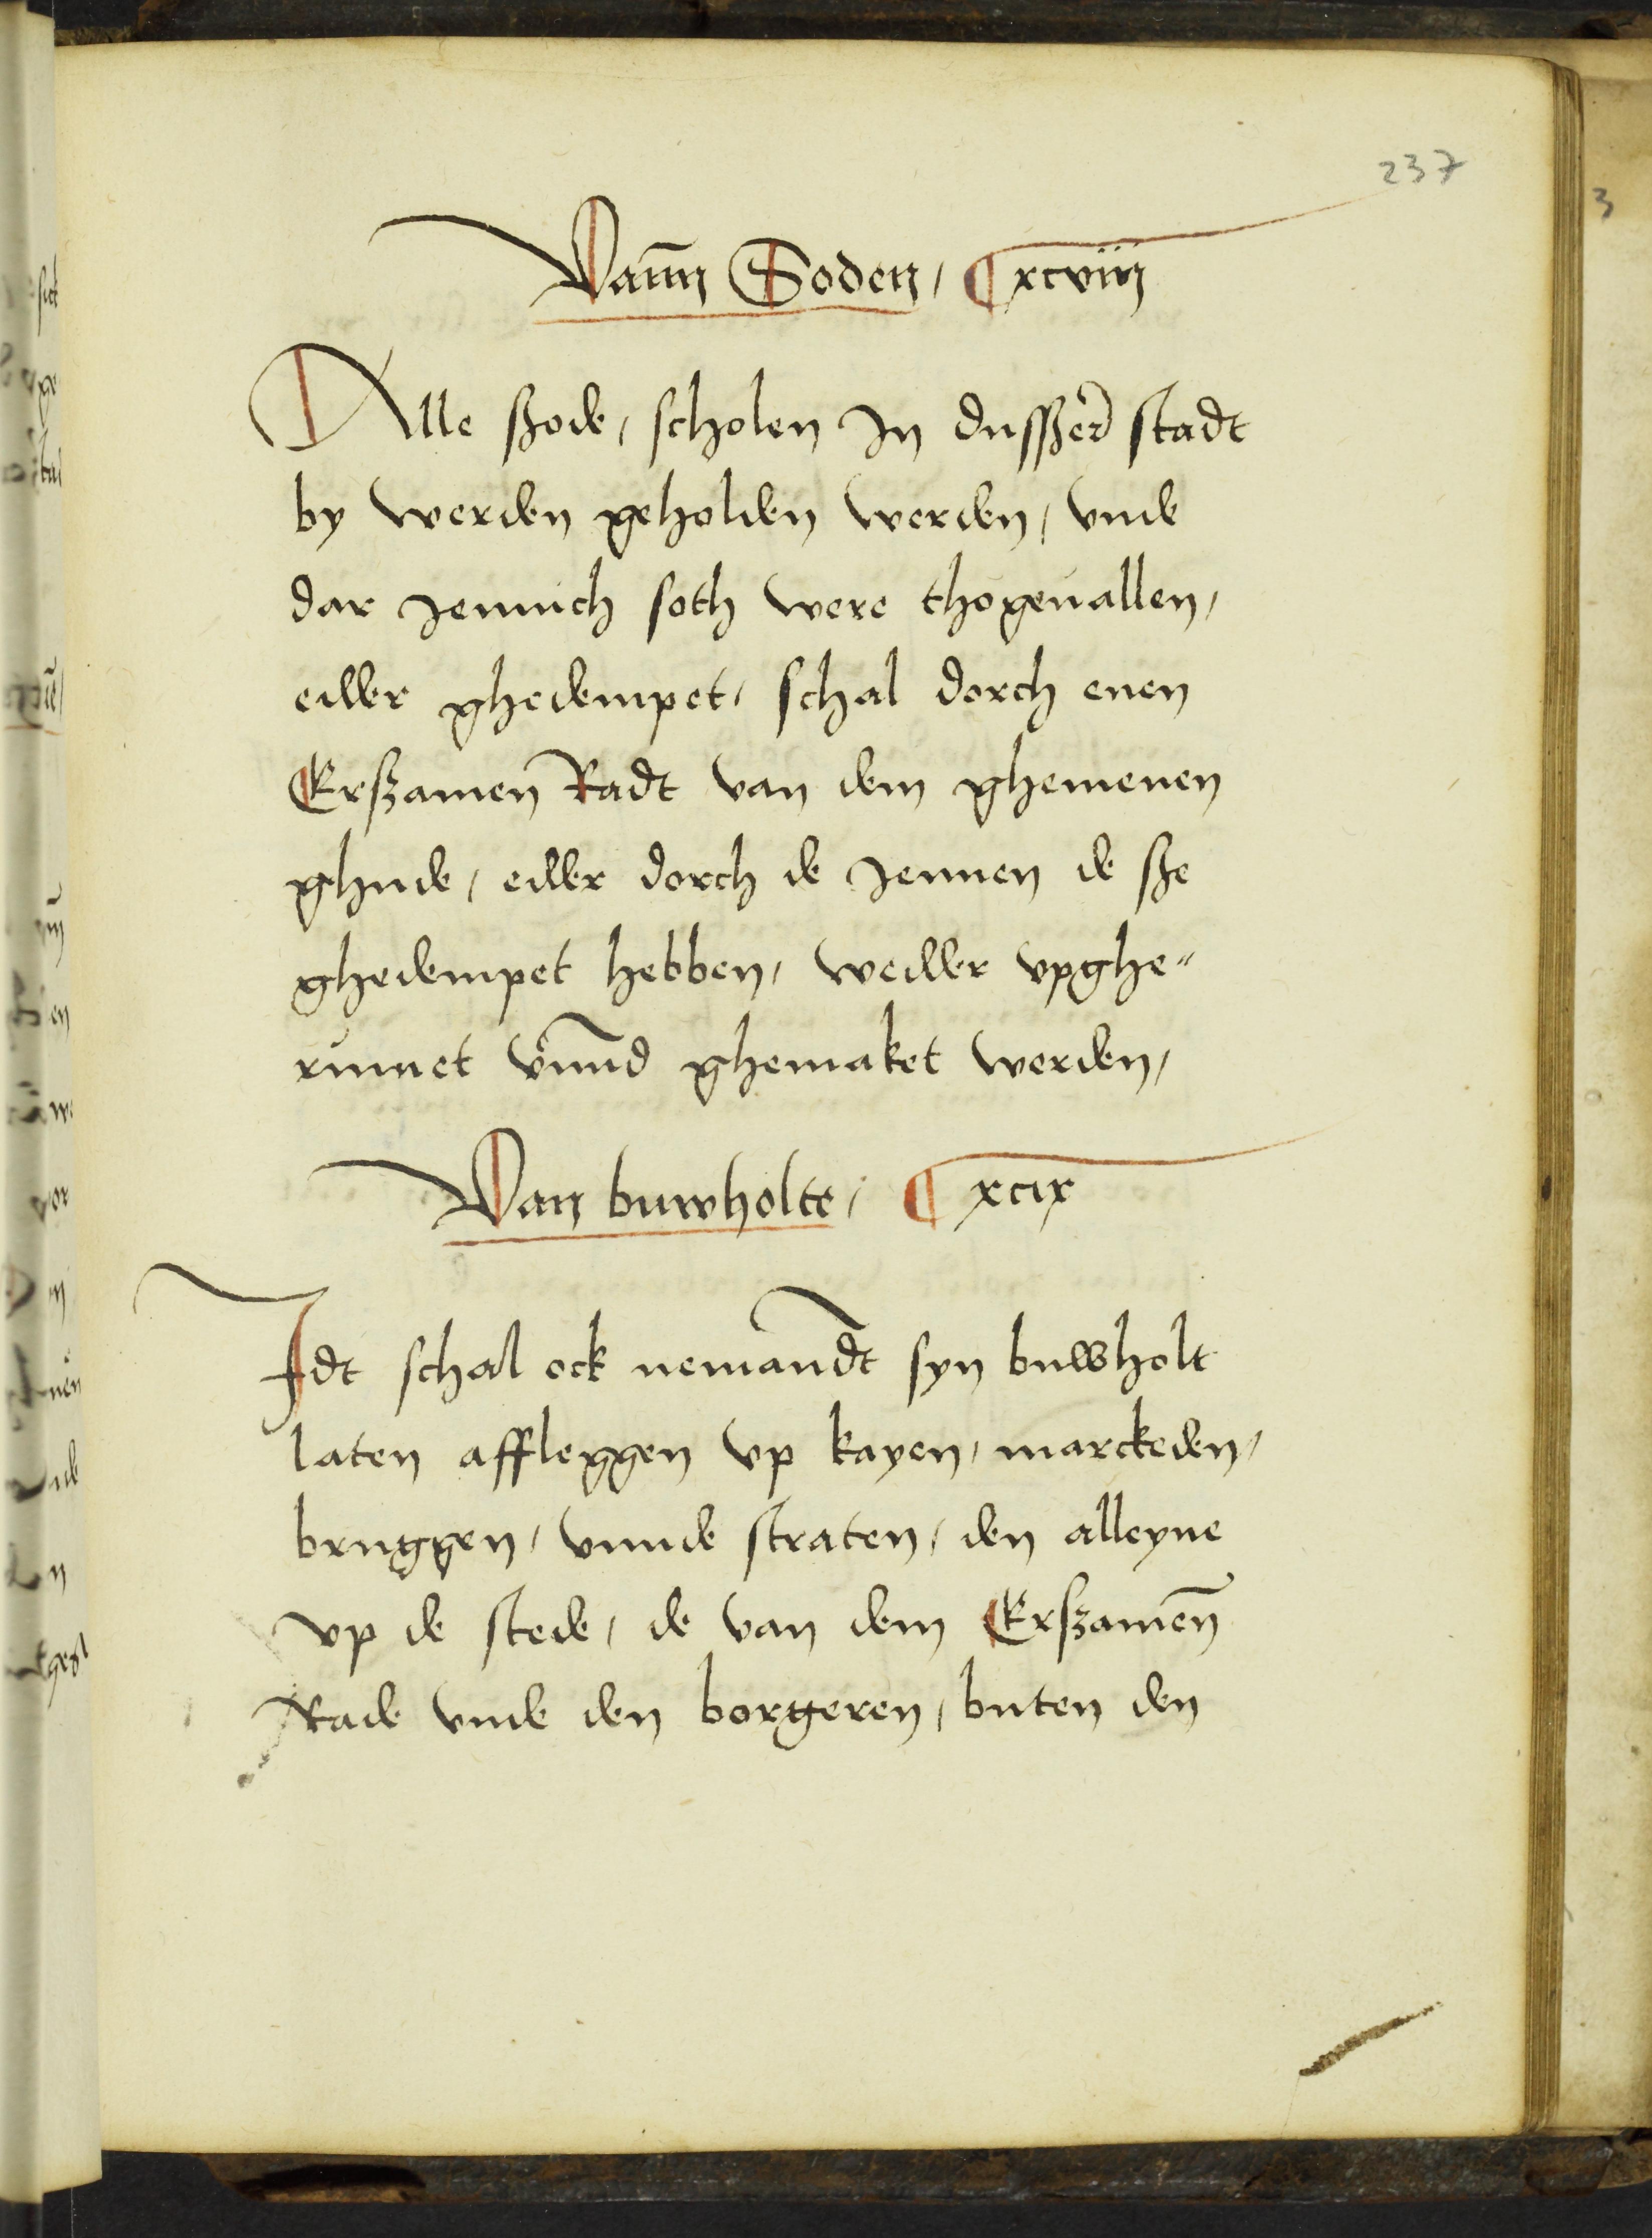 237
Vann Soden / ¶ xcviij
Alle ßode / scholen Jn dusßer stadt
by werden geholden werden / vnde
dar Jennich soth were thogeuallen /
edder ghedempet / schal dorch enen
Erßamen Radt van dem ghemenen
ghude / edder dorch de Jennen de ße
ghedempet hebben / wedder vpghe„
rumet vnnd ghemaket werden /
Van buwholte / ¶ xcix
Jdt schal ock nemandt syn buwholt
laten affleggen vp kayen / marckeden /
bruggen / vnnde straten / den alleyne
vp de stede / de van dem Erßamen
Rade vnde den borgeren / buten den